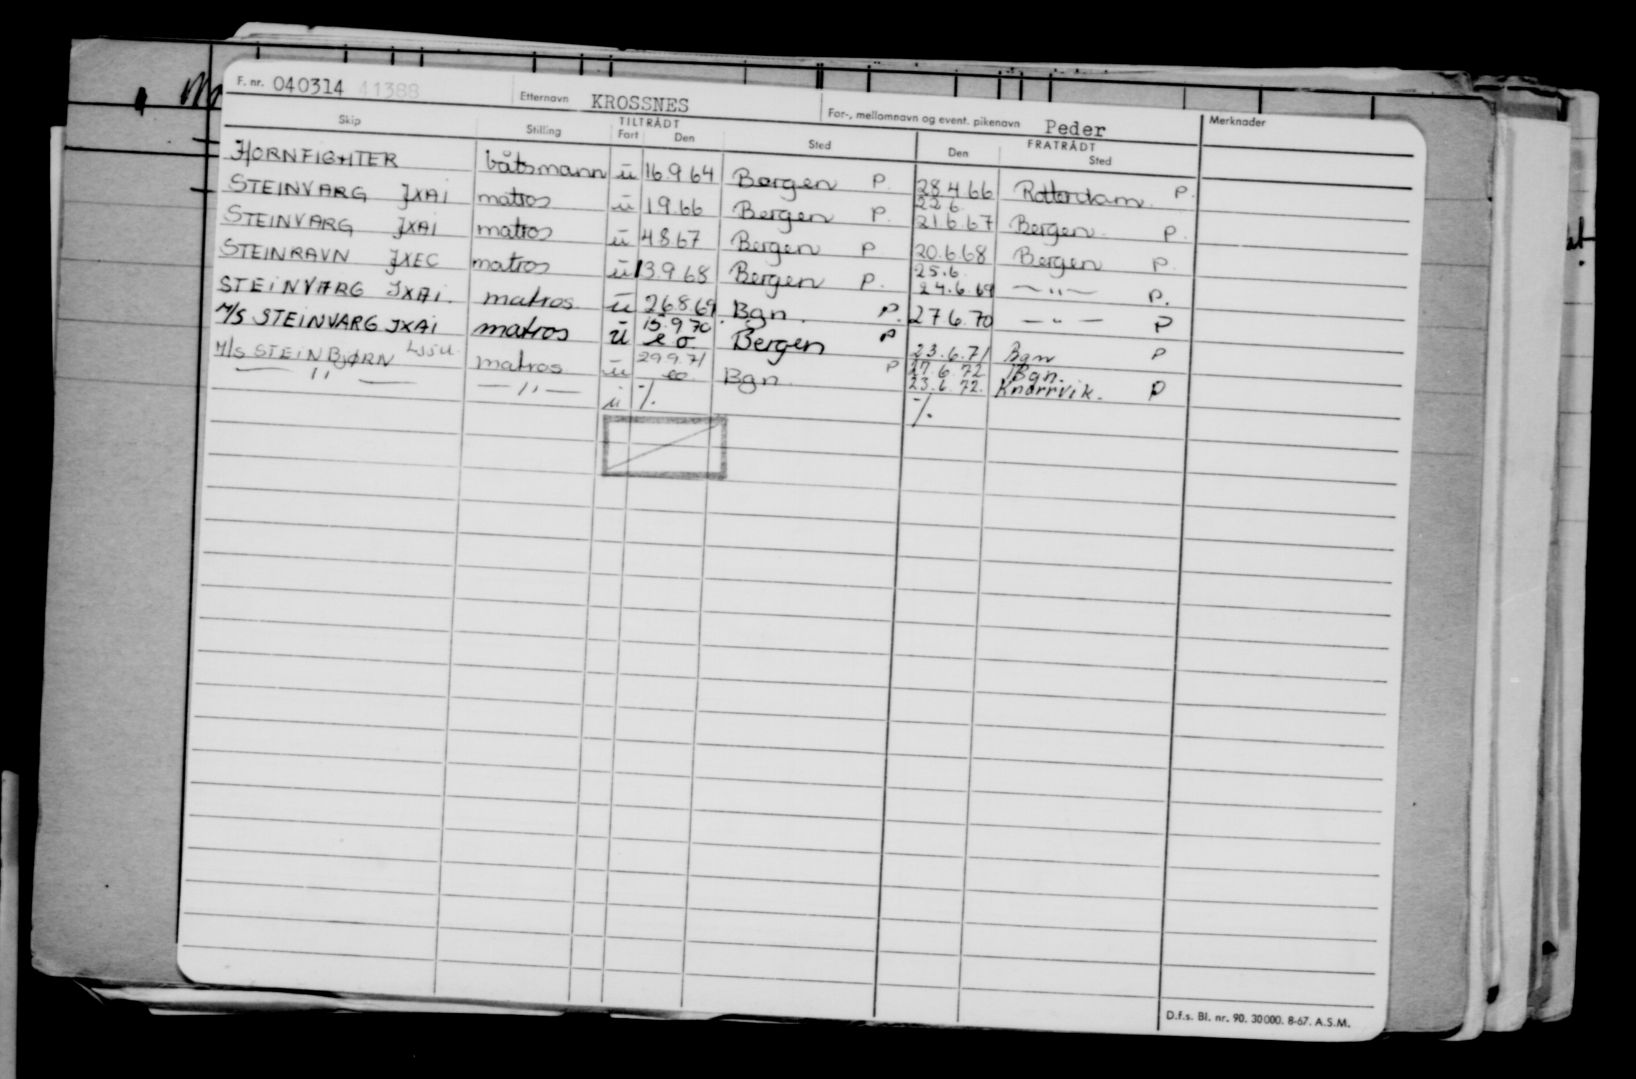 F. nr. 040314 41388 Etternavn KROSSNES For-, mellomnavn og event. pikenavn Peder Merknader
Skip Stilling TILTRÅDT Fart Den Sted FRATRÅDT Den Sted
HORNFIGHTER båtsmann ū 16.9 64 Bergen P. 28.4.66 Rotterdam P.
STEINVARG JXAI matros ū 1.9.66 Bergen P. 22.6. 21.6.67 Bergen P.
STEINVARG JXAI matros ū 4.8.67 Bergen P 20.6.68 Bergen P.
STEINRAVN JXEC matros ū 13.9.68 Bergen P. 25.6. 24.6.69 —"— P.
STEINVARG JXAI. matros ū 26.8.69 Bgn. P. 27.6.70 —"— P
M/S STEINVARG JXAI matros ū 15.9.70 e.o. Bergen P 23.6.71 Bgn P
M/S STEINBJØRN matros ū 29.9.71 eo. Bgn. P 27.6.72 Bgn.
—"— —"— ū -/. 23.6.72. Knarrvik. P
-/.
D.f.s. Bl. nr. 90. 30000. 8-67. A.S.M.